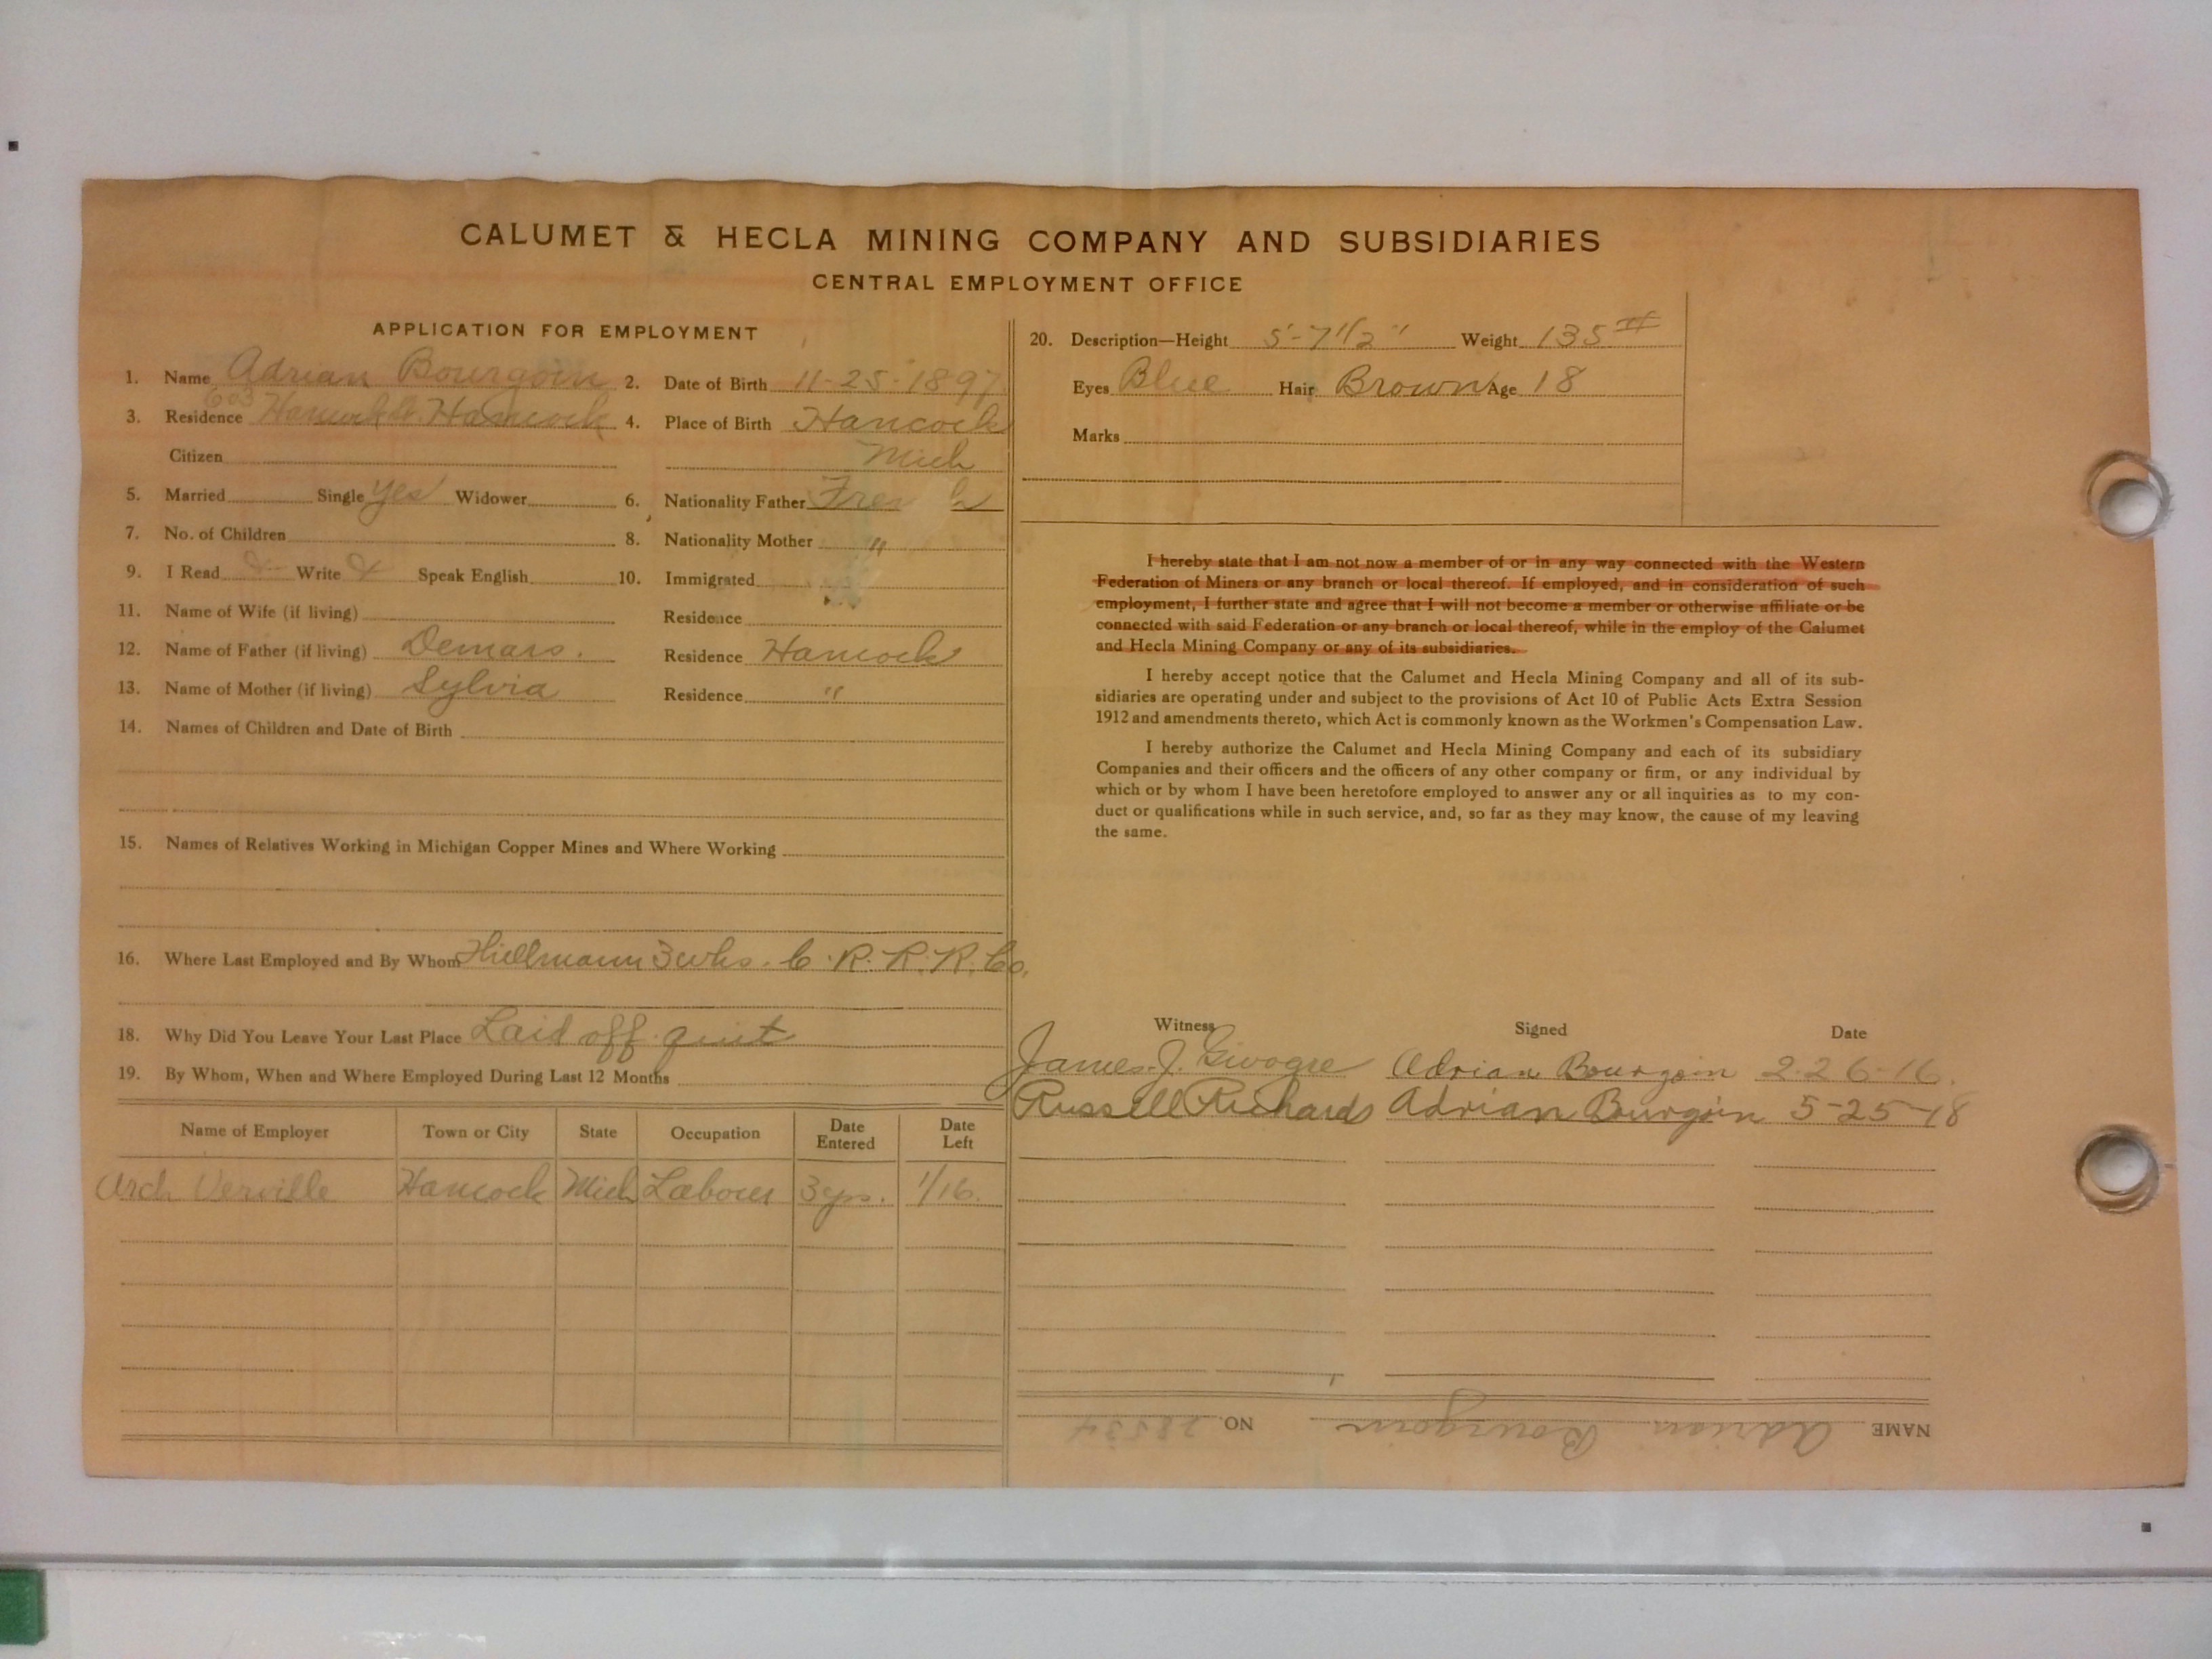 CALUMET & HECLA MINING COMPANY AND SUBSIDIARIES
CENTRAL EMPLOYMENT OFFICE
APPLICATION FOR EMPLOYMENT
1. Name Adrian Bourgoin 2. Date of Birth 11-25-1897
603
3. Residence Hancock St. Hancock 4. Place of Birth Hancock
Citizen Mich
5. Married Single Yes Widower 6. Nationality Father French
7. No. of Children 8. Nationality Mother "
9. I Read Write Speak English 10. Immigrated
11. Name of Wife (if living) Residence
12. Name of Father (if living) Demars. Residence Hancock
13. Name of Mother (if living) Sylvia Residence "
14. Names of Children and Date of Birth
15. Names of Relatives Working in Michigan Copper Mines and Where Working
16. Where Last Employed and By Whom Hillmann 3 wks. C.R.R.R.Co.
18. Why Did You Leave Your Last Place Laid off. quit
19. By Whom, When and Where Employed During Last 12 Months
Name of Employer Town or City State Occupation Date Entered Date Left
Arch Verville Hancock Mich Laborer 3 yrs. 1/16.
20. Description—Height 5'-7 1/2" Weight 135 #
Eyes Blue Hair Brown Age 18
Marks
I hereby state that I am not now a member of or in any way connected with the Western
Federation of Miners or any branch or local thereof. If employed, and in consideration of such
employment, I further state and agree that I will not become a member or otherwise affiliate or be
connected with said Federation or any branch or local thereof, while in the employ of the Calumet
and Hecla Mining Company or any of its subsidiaries.
I hereby accept notice that the Calumet and Hecla Mining Company and all of its sub-
sidiaries are operating under and subject to the provisions of Act 10 of Public Acts Extra Session
1912 and amendments thereto, which Act is commonly known as the Workmen's Compensation Law.
I hereby authorize the Calumet and Hecla Mining Company and each of its subsidiary
Companies and their officers and the officers of any other company or firm, or any individual by
which or by whom I have been heretofore employed to answer any or all inquiries as to my con-
duct or qualifications while in such service, and, so far as they may know, the cause of my leaving
the same.
Witness Signed Date
James J. Givogre Adrian Bourgoin 2-26-16.
Russell Richards Adrian Bourgoin 5-25-18
NAME Adrian Bourgoin NO. 28534